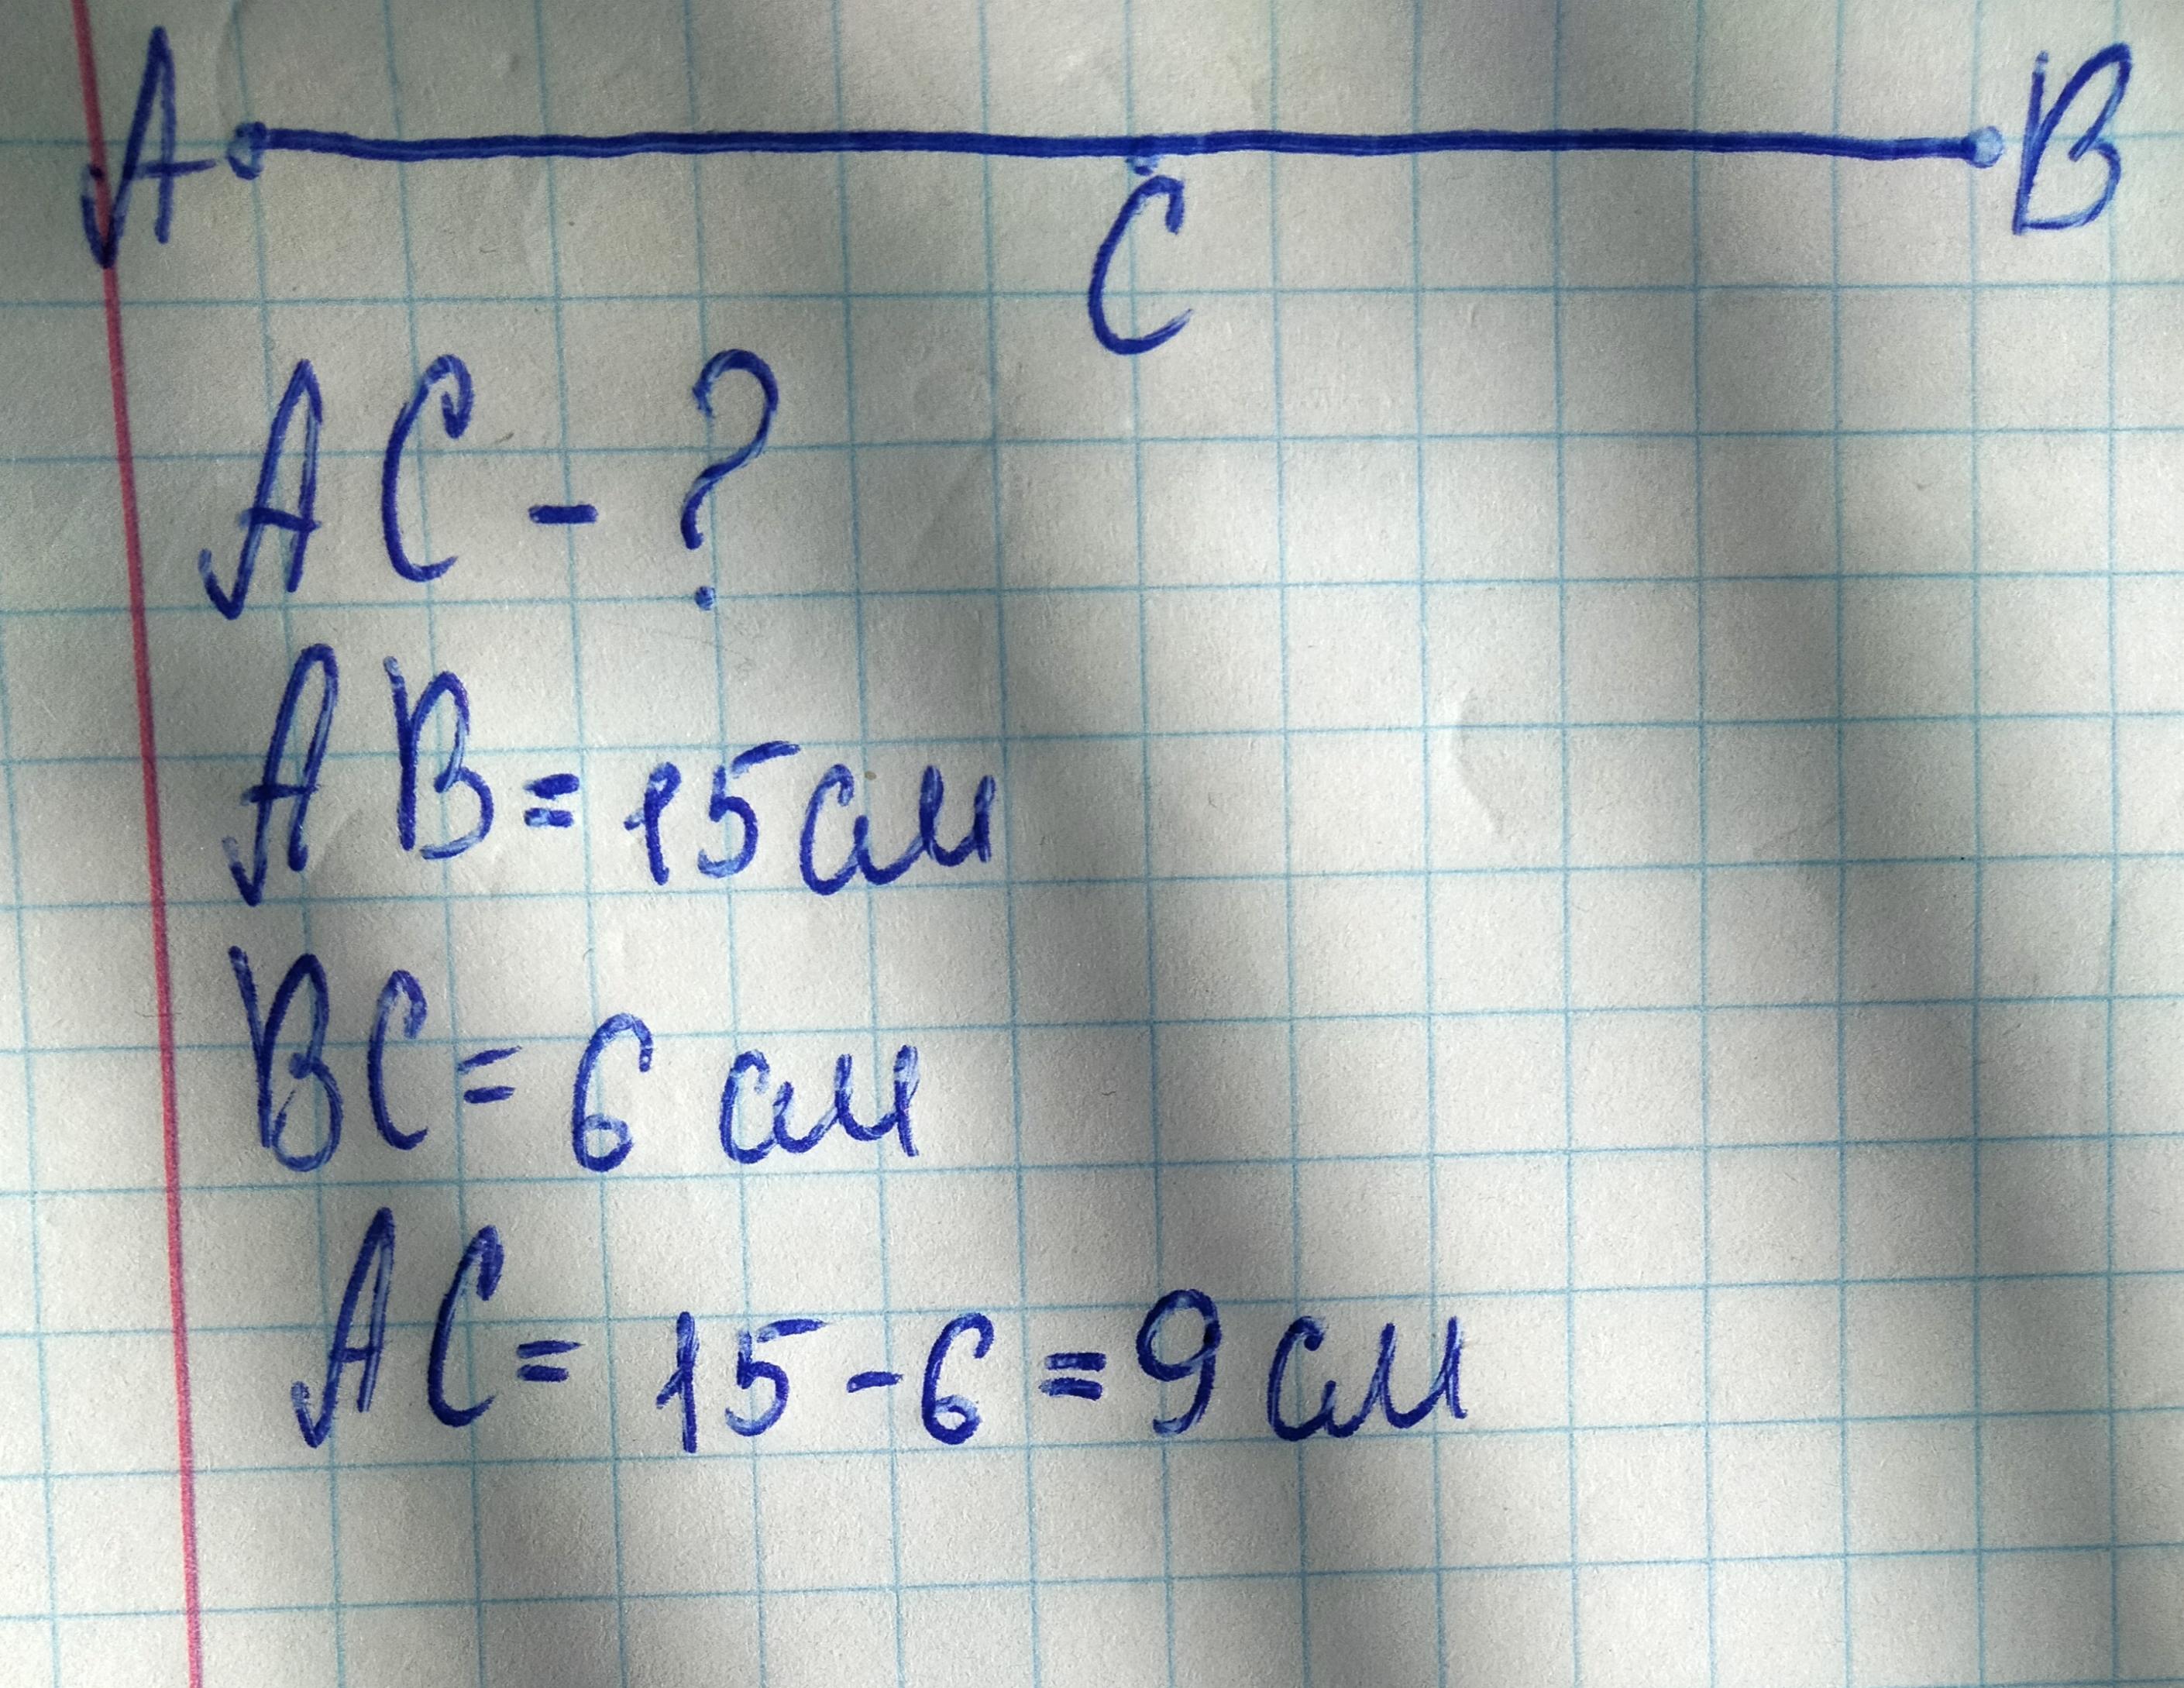 A B
C
AC - ?
AB = 15 см
BC = 6 см
AC = 15 - 6 = 9 см